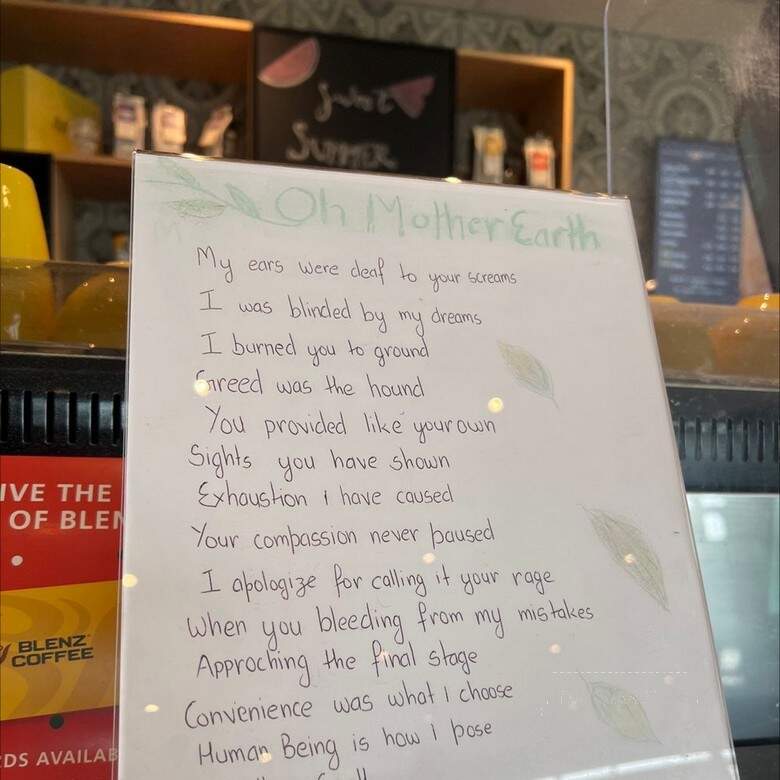 Sweet
SUMMER
Oh Mother Earth
My ears were deaf to your screams
I was blinded by my dreams
I burned you to ground
Greed was the hound
You provided like your own
Sights you have shown
Exhaustion i have caused
Your compassion never paused
I apologize for calling it your rage
When you bleeding from my mistakes
Approching the final stage
Convenience was what i choose
Human Being is how i pose
IVE THE
OF BLEN
BLENZ
COFFEE
DS AVAILAB